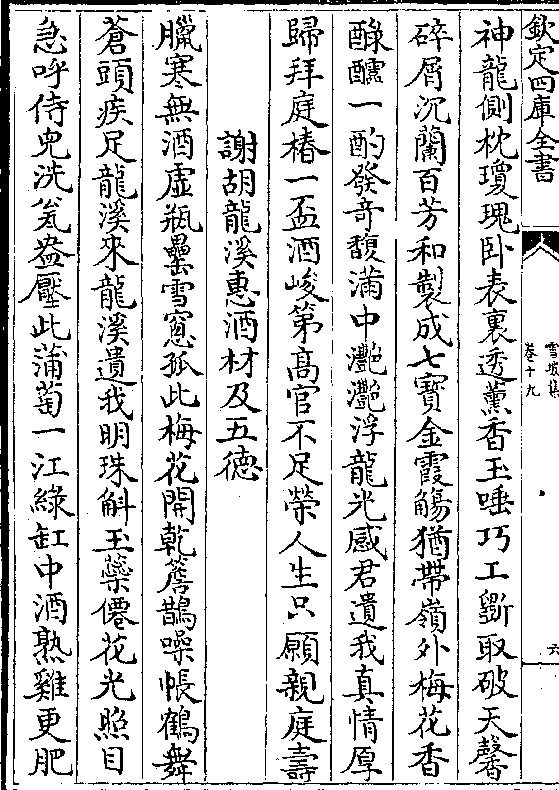 欽定四庫全書
雪坡集
卷十九
六
神龍側枕瓊瑰卧表裏透薰香玉唾巧工斵取破天馨
碎屑沉蘭百芳和製成七寶金霞觴猶帶嶺外梅花香
醁醹一酌發奇馥滿中灧灧浮龍光感君遺我真情厚
歸拜庭椿一盃酒峻第髙官不足榮人生只願親庭壽
謝胡龍溪惠酒材及五德
臘寒無酒虛瓶罍雪窓孤此梅花開乾簷鵲噪帳鶴舞
蒼頭疾足龍溪來龍溪遺我明珠斛玉蘂僊花光照目
急呼侍兒洗瓮盎壓此蒲萄一江綠缸中酒熟雞更肥